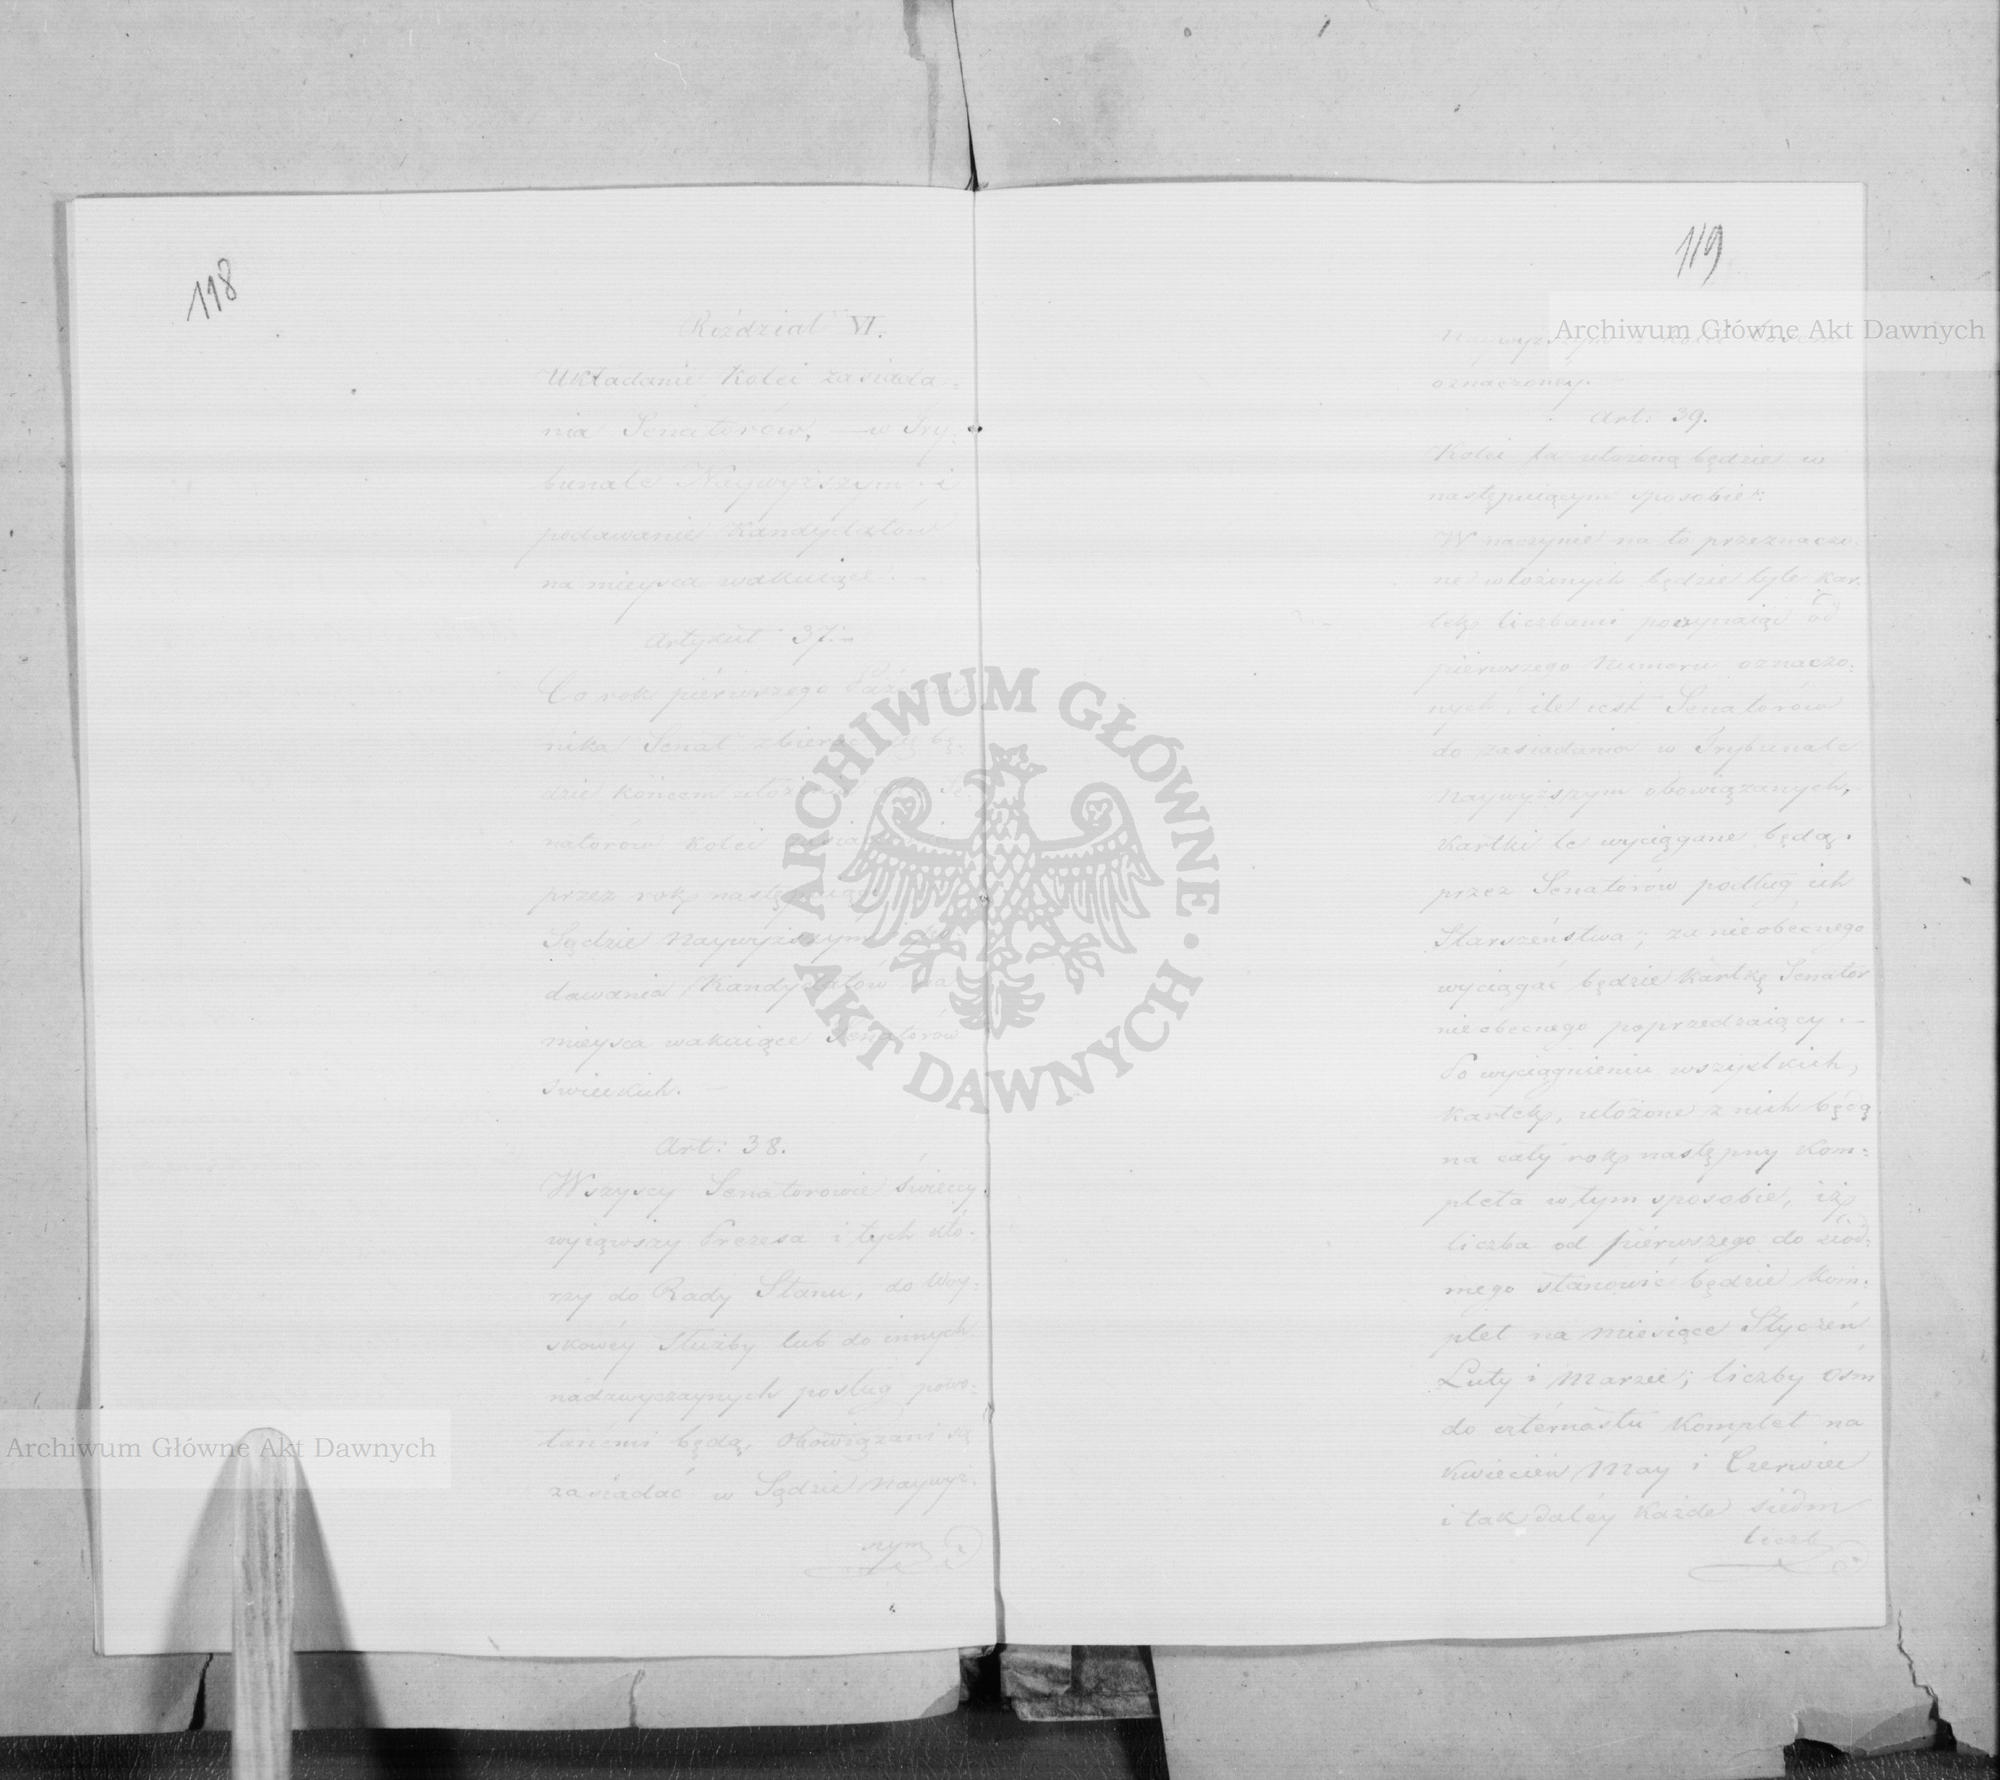 118
Rozdział VI.
Układanie Kolei zasiada=
nia Senatorów, — w Try=
bunale Naywyższym i
podawanie Kandydatów
na mieysca wakuiące. —
Artykuł 37. —
Co rok pierwszego Paździer
nika Senat zbierać się bę=
dzie końcem ułożenia
natorów kolei
przez rok następuiący
Sądzie Naywyższym i po=
dawania Kandydatów na
mieysca wakuiące Senatorów
świeckich. —
Art: 38.
Wszyscy Senatorowie świeccy,
wyiąwszy Prezesa i tych któ=
rzy do Rady Stanu, do Woy=
skowéy Służby lub do innych
nadzwyczaynych posług powo=
łanémi będą, obowiązani są
zasiadać w Sądzie Naywyż=
szym
119
Naywyższym w kolei
oznaczoney.
Art: 39.
Kolei ta ułożoną będzie w
następuiącym sposobie:
W naczynie na to przeznaczo=
ne włożonych będzie tyle kar=
tek liczbami poczynaiąc od
pierwszego Numeru oznaczo=
nych, ile iest Senatorów
do zasiadania w Trybunale
Naywyższym obowiązanych,
Kartki te wyciągane będą
przez Senatorów podług ich
Starszeństwa; za nieobecnego
wyciągać będzie kartkę Senator
nieobecnego poprzedzaiący. —
Po wyciągnieniu wszystkich,
kartek, ułożone z nich będą
na cały rok następny Kom=
pleta w tym sposobie, iż
liczba od pierwszego do siód=
mego stanowić będzie Kom=
plet na Miesiące Styczeń
Luty i Marzec; liczby ośm
do czternastu Komplet na
Kwiecień May i Czerwiec
i tak daléy każde siedm
liczb
Archiwum Główne Akt Dawnych
ARCHIWUM GŁÓWNE • AKT DAWNYCH •
Archiwum Główne Akt Dawnych